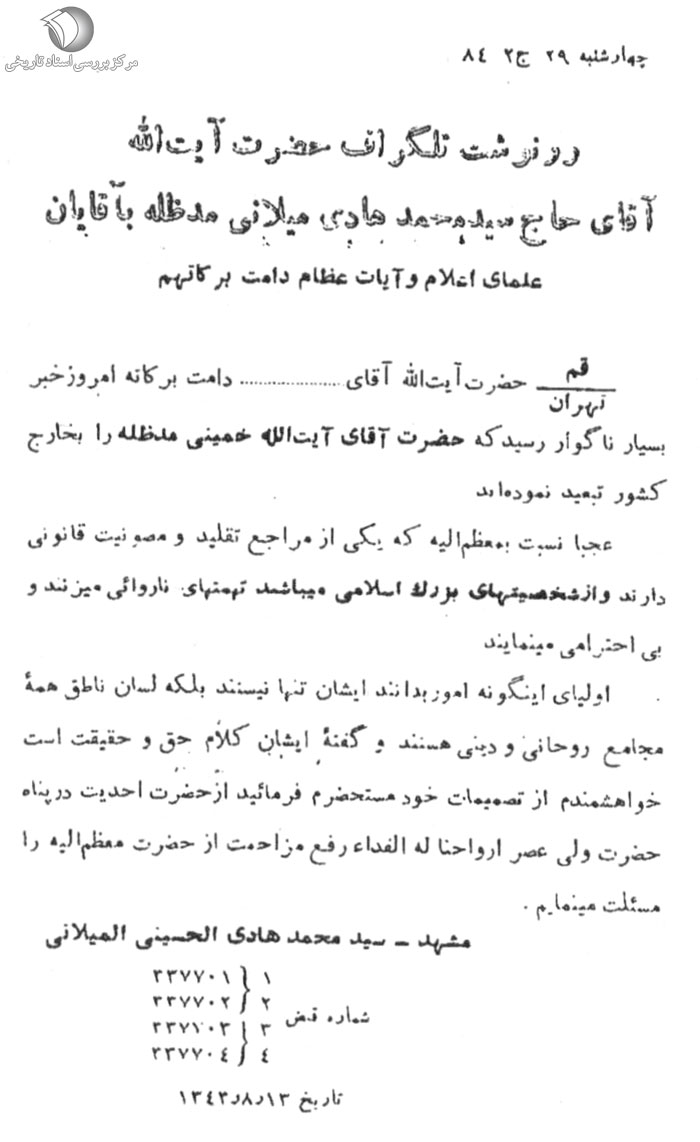 مرکز بررسی اسناد تاریخی
چهارشنبه ۲۹ ج۲ ۸٤
رونوشت تلگراف حضرت آیت‌الله
آقای حاج سیدمحمد هادی میلانی مدظله بآقایان
علمای اعلام و آیات عظام دامت برکاتهم
قم
تهران
حضرت آیت‌الله آقای ..................... دامت برکاته امروز خبر
بسیار ناگوار رسید که حضرت آقای آیت‌الله خمینی مدظله را بخارج
کشور تبعید نموده‌اند
عجبا نسبت بمعظم‌الیه که یکی از مراجع تقلید و مصونیت قانونی
دارند و از شخصیتهای بزرك اسلامی میباشند تهمتهای ناروائی میزنند و
بی احترامی مینمایند
اولیای اینگونه امور بدانند ایشان تنها نیستند بلکه لسان ناطق همهٔ
مجامع روحانی و دینی هستند و گفتهٔ ایشان کلام حق و حقیقت است
خواهشمندم از تصمیمات خود مستحضرم فرمائید از حضرت احدیت در پناه
حضرت ولی عصر ارواحنا له الفداء رفع مزاحمت از حضرت معظم‌الیه را
مسئلت مینمایم .
مشهد ـ سید محمد هادی الحسینی المیلانی
شماره قبض
۱ } ۲۳۷۷۰۱
۲ } ۲۳۷۷۰۲
۳ } ۲۳۷۷۰۳
٤ } ۲۳۷۷۰٤
تاریخ ۱۳ر۸ر۱۳٤۳